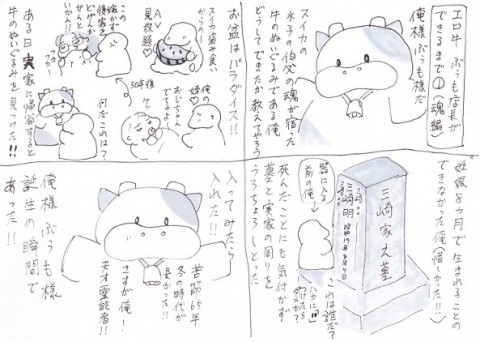 エロ牛 ぶぅも店長が
できるまで①(魂編)
俺様ぶぅも様だ
スイカの
水子の伯父の魂が宿った
牛のぬいぐるみである俺
どうしてできたか教えてやろう
妊娠8カ月で生まれることの
できなかった俺(惜しかった!!)
三崎家之墓
これは誰だ?
器に入る
前の俺
死んだことにも気付かず
墓と実家の周りを
うろちょろしとった
スイカ盗み食い
からの〜
AV
見放題♡
お盆はパラダイス!!
俺の
妹♡
おじちゃん
でちゅよ〜
30年後
何だこれは?
ある日実家に帰省すると
牛のぬいぐるみを見つけた!!
入ってみたら
入れた!!
苦節65年
冬の時代が
長かった!!
さすが俺!
天才霊能者!!
俺様ぶぅも様
誕生の瞬間で
あった!!